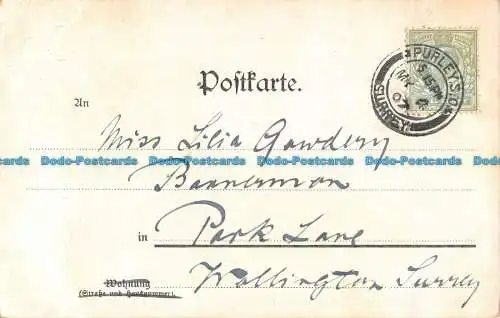 Postkarte.
PURLEY STON
5.15 PM
MY
07
SURREY
An
Miss Lilia Gowdery
Dodo-Postcards Dodo-Postcards Dodo-Postcards Dodo-Postcards Dodo-Postcards
Bannermon
in Park Lane
Wohnung
(Straße und Hausnummer).
Wallington Surrey